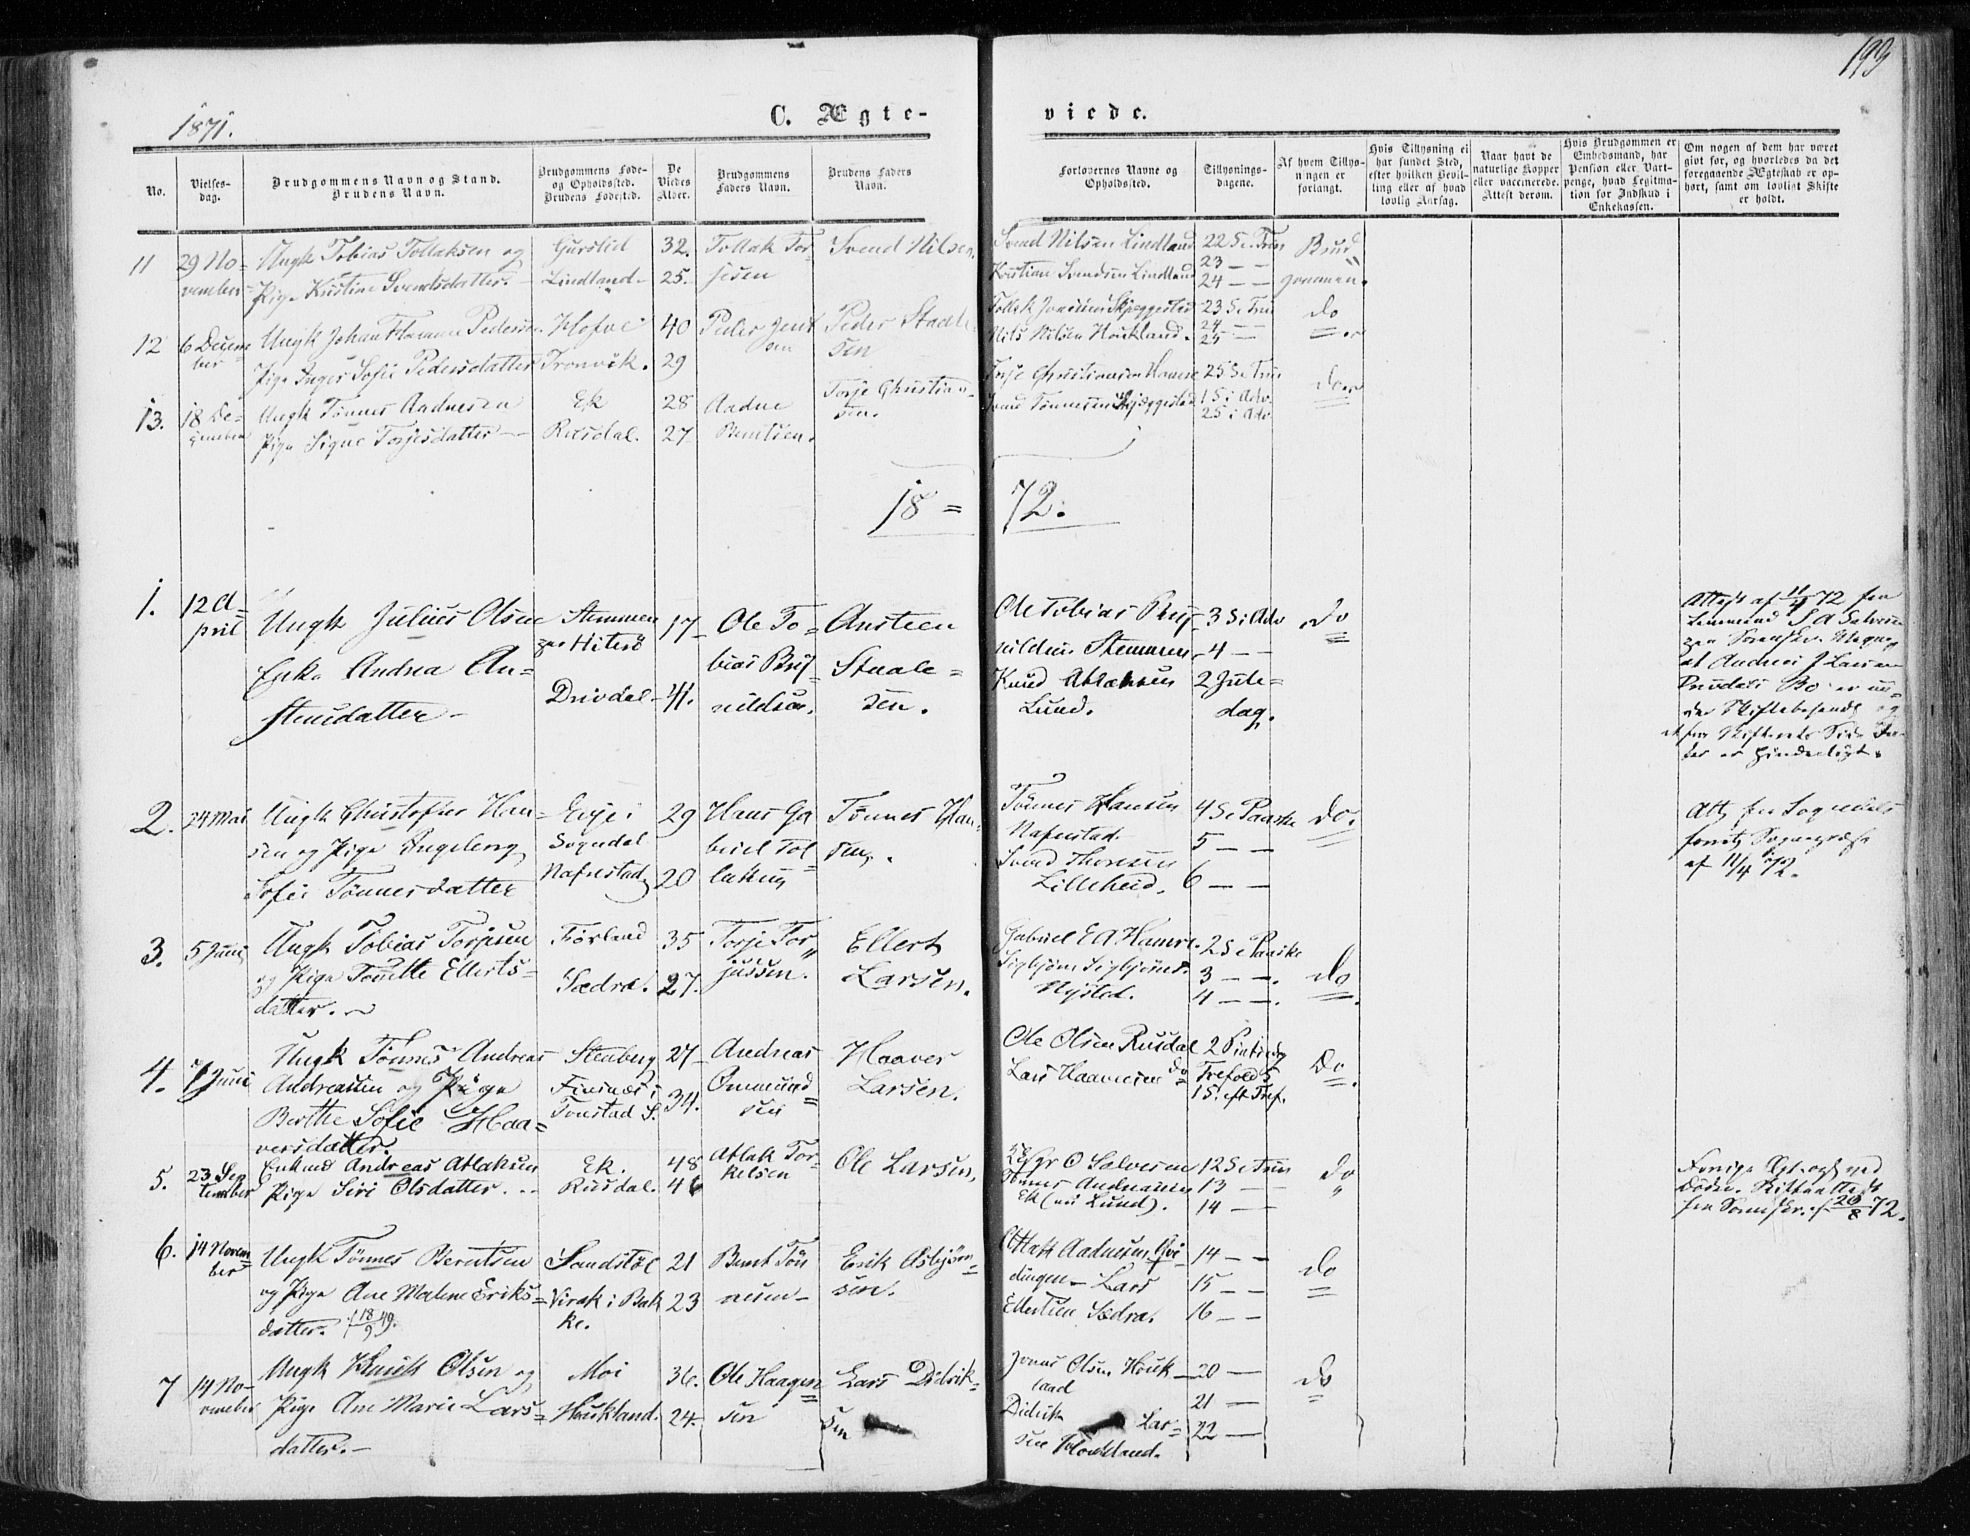 193
1871.
C. Ægte-
viede.
No.
Vielses-
dag.
Brudgommens Navn og Stand.
Brudens Navn.
Brudgommens Føde-
og Opholdssted.
Brudens Fødested.
De
Viedes
Alder.
Brudgommens
Faders Navn.
Brudens Faders
Navn.
Forlovernes Navne og
Opholdssted.
Tillysnings-
dagene.
Af hvem Tillys-
ningen er
forlangt.
Hvis Tillysning ei
har fundet Sted,
efter hvilken Bevil-
ling eller af hvad
lovlig Aarsag.
Naar havt de
naturlige Kopper
eller vaccinerede.
Attest derom.
Hvis Brudgommen er
Embedsmand, har
Pension eller Vart-
penge, hvad Legitima-
tion for Indskud i
Enkekassen.
Om nogen af dem har været
givt før, og hvorledes da det
foregaaende Ægteskab er op-
hørt, samt om lovligt Skifte
er holdt.
11
29 No-
vember
Ungk Tobias Tollaksen og
Pige Kistine Svendsdatter.
Gursted
Lindland
32.
25.
Tollak Tor-
jesen
Svend Nilsen
Svend Nilsen Lindland
Kristian Svendsen Lindland
22 S e. Trin
23 — —
24 — —
Brud-
gommen.
12
6 Decem
ber
Ungk Johan Peders
Pige Inger Sofie Pedersdatter
Tronvik.
40
29
Peder
Peder Staale-
sen
Tollak Skjeggestad
Nils Nilsen Houkland.
23 S e Trin
24 —
25 —
do
13.
18 De-
cember
Ungk Tønnes Aadnesen
Pige Signe Torjesdatter
Ek
Rusdal.
28
27
Aadne
Berntsen.
Torje Christian-
sen.
Torje Christiansen
Tønnesen Skjeggestad
25 S e Trin
1 S i Adv.
2 S i Adv.
do
18 = 72.
1.
12 A-
pril
Ungk Julius Olsen
Enke Andrea An-
stensdatter
Stemmen
Hiterø
Drivdal
17
41.
Ole To-
bias Bryn-
ildsen.
Ansteen
Staale-
sen.
Ole Tobias Bryn-
ildsen Stemmen
Knud Atlaksen
Lund.
3 S i Adv
4 — —
2 Jule-
dag.
do
Attest af 11/4 72 fra
Lensmand
at Andreas J Larsen
Drivdals Bo er un-
der Skiftebehandl og
2.
24 Mai
Ungk Christoffer Han-
sen og Pige Ingeborg
Sofie Tønnesdatter
Eeje i
Sogndal
Nafnestad
29
20
Hans Ga
briel Tol
laksen
Tønnes Han-
sen.
Tønnes Hansen
Nafnestad.
Svend Thorsen
Lilleheid.
4 S e Paaske
5 — —
6 — —
do.
Att fra Sogndals
af 11/4 72.
3.
5 Juni
Ungk Tobias Torjesen
og Pige Tonette Ellerts-
datter.
Førland
Sædra.
35
27.
Torje Tor-
jussen.
Ellert
Larsen.
Gabriel E A Hamre
Sigbjørn Sigbjørns.
Nysted.
2 S e Paaske
3 — —.
4 — —.
do
4.
7 Juni
Ungk Tønnes Andreas
Andreassen og Pige
Berthe Sofie Haa-
versdatter.
Stenberg
Finsnæs i
Tonstad S.
27
34.
Andreas
Ommund-
sen
Haaver
Larsen.
Ole Olsen Rusdal
Lars Haaversen do
2 Pintsedg
Trefold S
1 S. eft Tref.
Do
5.
23 Sep
tember
Enkmd Andreas Atlaksen
Pige Siri Olsdatter.
Ek.
Rusdal.
48
46
Atlak Tor-
kelsen
Ole Larsen.
O Salvesen
Tønnes Andreassen
Ek (nu Lund).
12 S e Trin
13 —
14 —
do
Forrige Ægt. oph ved
Døden. Skifteattest
fra Sorenskr. af 20/8 72.
6.
14 Novem
ber
Ungk Tønnes Berntsen
og Pige Ane Malene Eriks-
datter. f 18/9 49.
Sandstøl
Virak i Bak
ke.
21
23
Bernt Tøn
nesen
Erik Asbjørn-
sen.
Atlak Aadnesen Qvi-
dingen — Lars
Ellertsen Sædra.
14 — —
15 — —
16 — —
do
7
14 No-
vember
Ungk Knuth Olsen og
Pige Ane Marie Lars-
datter.
Moi
Houkland.
36.
24.
Ole Haagen
sen
Lars Didrik-
sen
Jonas Olsen Houk
land
Didrik Lar-
sen Houkland.
20 —
21 —
22 —
do